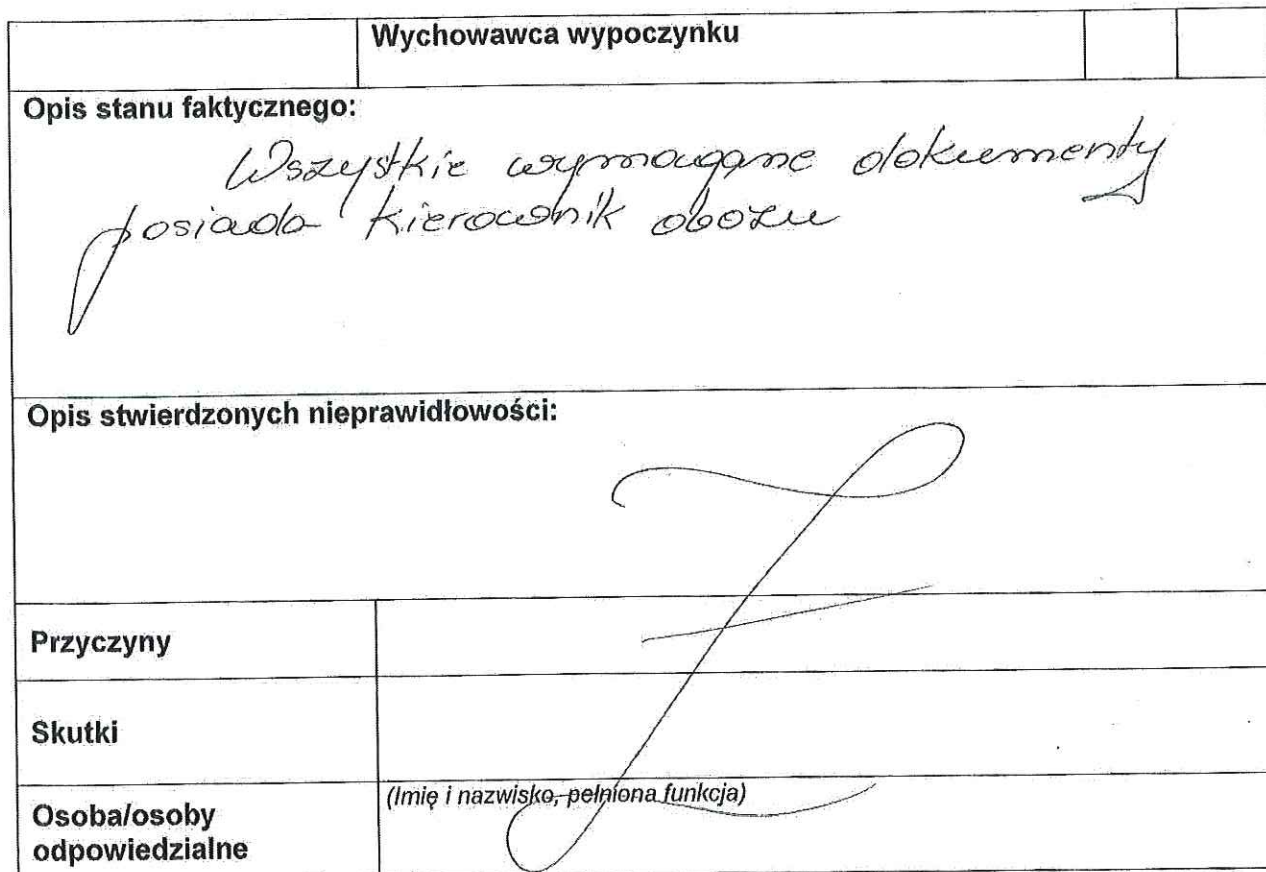 Wychowawca wypoczynku
Opis stanu faktycznego:
Wszystkie wymagane dokumenty
posiada kierownik obozu
Opis stwierdzonych nieprawidłowości:
Przyczyny
Skutki
Osoba/osoby
odpowiedzialne
(Imię i nazwisko, pełniona funkcja)